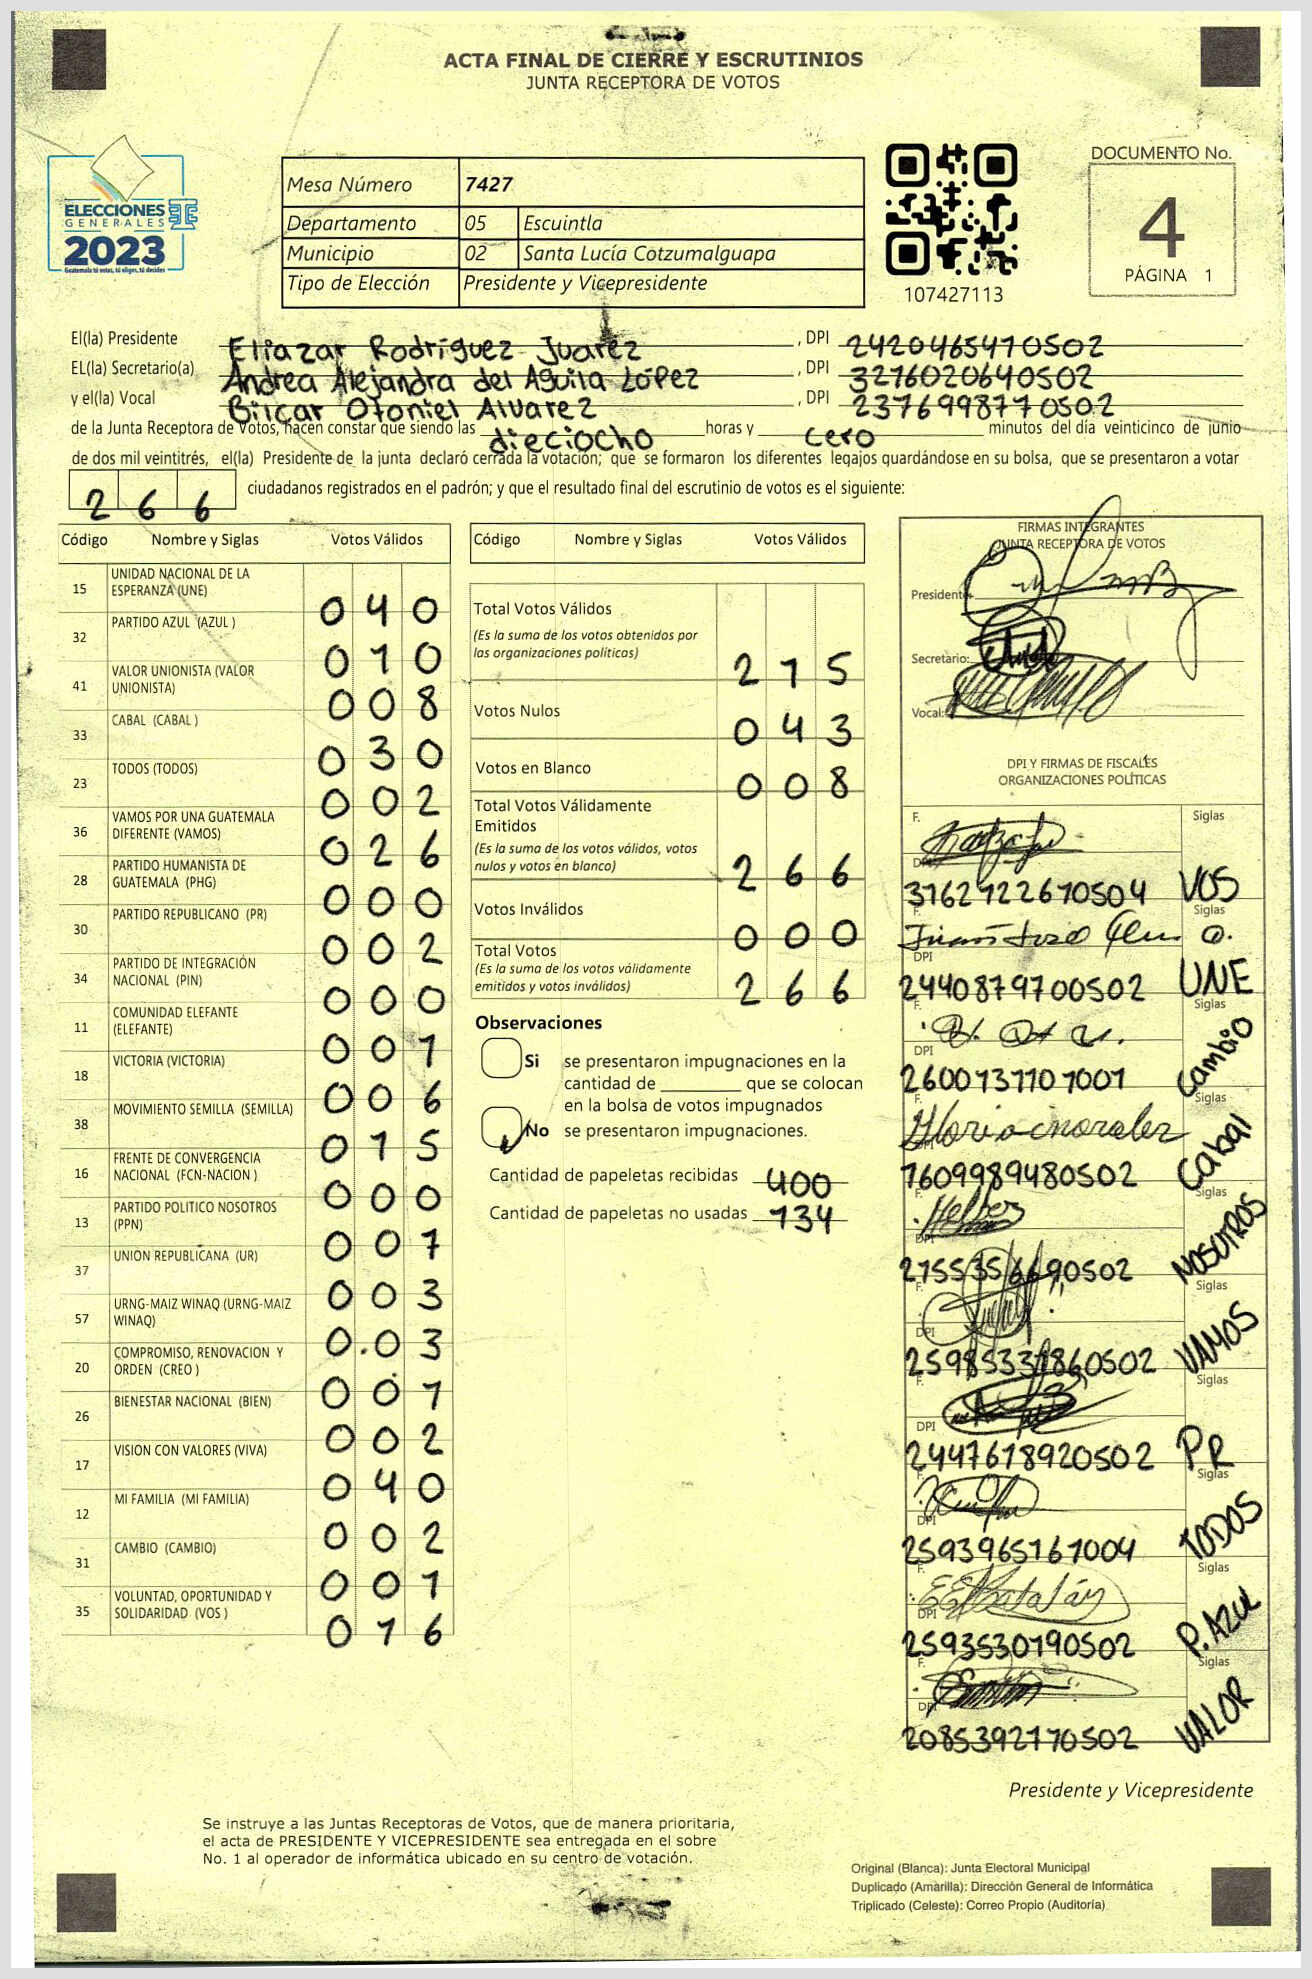 ACTA FINAL DE CIERRE Y ESCRUTINIOS
JUNTA RECEPTORA DE VOTOS
ELECCIONES
GENERALES
2023
Guatemala tú votas, tú eliges, tú decides
Mesa Número 7427
Departamento 05 Escuintla
Municipio 02 Santa Lucía Cotzumalguapa
Tipo de Elección Presidente y Vicepresidente
107427113
DOCUMENTO No.
4
PÁGINA 1
El(la) Presidente Eliazar Rodríguez Juarez , DPI 2420465470502
EL(la) Secretario(a) Andrea Alejandra del Aguila López , DPI 3276020640502
y el(la) Vocal Bilcar Otoniel Alvarez , DPI 2376998770502
de la Junta Receptora de Votos, hacen constar que siendo las dieciocho horas y cero minutos del día veinticinco de junio
de dos mil veintitrés, el(la) Presidente de la junta declaró cerrada la votación; que se formaron los diferentes legajos guardándose en su bolsa, que se presentaron a votar
266 ciudadanos registrados en el padrón; y que el resultado final del escrutinio de votos es el siguiente:
Código Nombre y Siglas Votos Válidos
15 UNIDAD NACIONAL DE LA ESPERANZA (UNE) 040
32 PARTIDO AZUL (AZUL ) 010
41 VALOR UNIONISTA (VALOR UNIONISTA) 008
33 CABAL (CABAL ) 030
23 TODOS (TODOS) 002
36 VAMOS POR UNA GUATEMALA DIFERENTE (VAMOS) 026
28 PARTIDO HUMANISTA DE GUATEMALA (PHG) 000
30 PARTIDO REPUBLICANO (PR) 002
34 PARTIDO DE INTEGRACIÓN NACIONAL (PIN) 000
11 COMUNIDAD ELEFANTE (ELEFANTE) 001
18 VICTORIA (VICTORIA) 006
38 MOVIMIENTO SEMILLA (SEMILLA) 015
16 FRENTE DE CONVERGENCIA NACIONAL (FCN-NACION ) 000
13 PARTIDO POLITICO NOSOTROS (PPN) 007
37 UNION REPUBLICANA (UR) 003
57 URNG-MAIZ WINAQ (URNG-MAIZ WINAQ) 0.03
20 COMPROMISO, RENOVACION Y ORDEN (CREO ) 001
26 BIENESTAR NACIONAL (BIEN) 002
17 VISION CON VALORES (VIVA) 040
12 MI FAMILIA (MI FAMILIA) 002
31 CAMBIO (CAMBIO) 001
35 VOLUNTAD, OPORTUNIDAD Y SOLIDARIDAD (VOS ) 016
Código Nombre y Siglas Votos Válidos
Total Votos Válidos
(Es la suma de los votos obtenidos por
las organizaciones políticas) 215
Votos Nulos 043
Votos en Blanco 008
Total Votos Válidamente
Emitidos
(Es la suma de los votos válidos, votos
nulos y votos en blanco) 266
Votos Inválidos 000
Total Votos
(Es la suma de los votos válidamente
emitidos y votos inválidos) 266
Observaciones
Si se presentaron impugnaciones en la
cantidad de ________ que se colocan
en la bolsa de votos impugnados
No se presentaron impugnaciones.
Cantidad de papeletas recibidas 400
Cantidad de papeletas no usadas 134
FIRMAS INTEGRANTES
JUNTA RECEPTORA DE VOTOS
Presidente:
Secretario:
Vocal:
DPI Y FIRMAS DE FISCALES
ORGANIZACIONES POLÍTICAS
F. Siglas
DPI 3162722670504 VOS
F. Siglas
DPI 2440879700502 UNE
F. Siglas
DPI 2600737107001 Cambio
F. Gloria Morales Siglas
DPI 1609989480502 Cabal
F. Siglas
DPI NOSOTROS
F. Siglas
DPI VAMOS
F. Siglas
DPI 2447618920502 PR
F. Siglas
DPI 2593965161004 TODOS
F. Siglas
DPI 2593530190502 P. AZUL
F. Siglas
DPI 2085392170502 VALOR
Presidente y Vicepresidente
Se instruye a las Juntas Receptoras de Votos, que de manera prioritaria,
el acta de PRESIDENTE Y VICEPRESIDENTE sea entregada en el sobre
No. 1 al operador de informática ubicado en su centro de votación.
Original (Blanca): Junta Electoral Municipal
Duplicado (Amarilla): Dirección General de Informática
Triplicado (Celeste): Correo Propio (Auditoría)